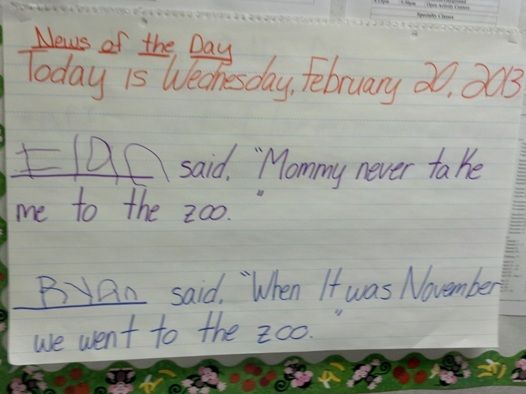 News of the Day
Today is Wednesday, February 20, 2013
Elan said, "Mommy never take
me to the zoo."
Ryan said, "When It was November
we went to the zoo."